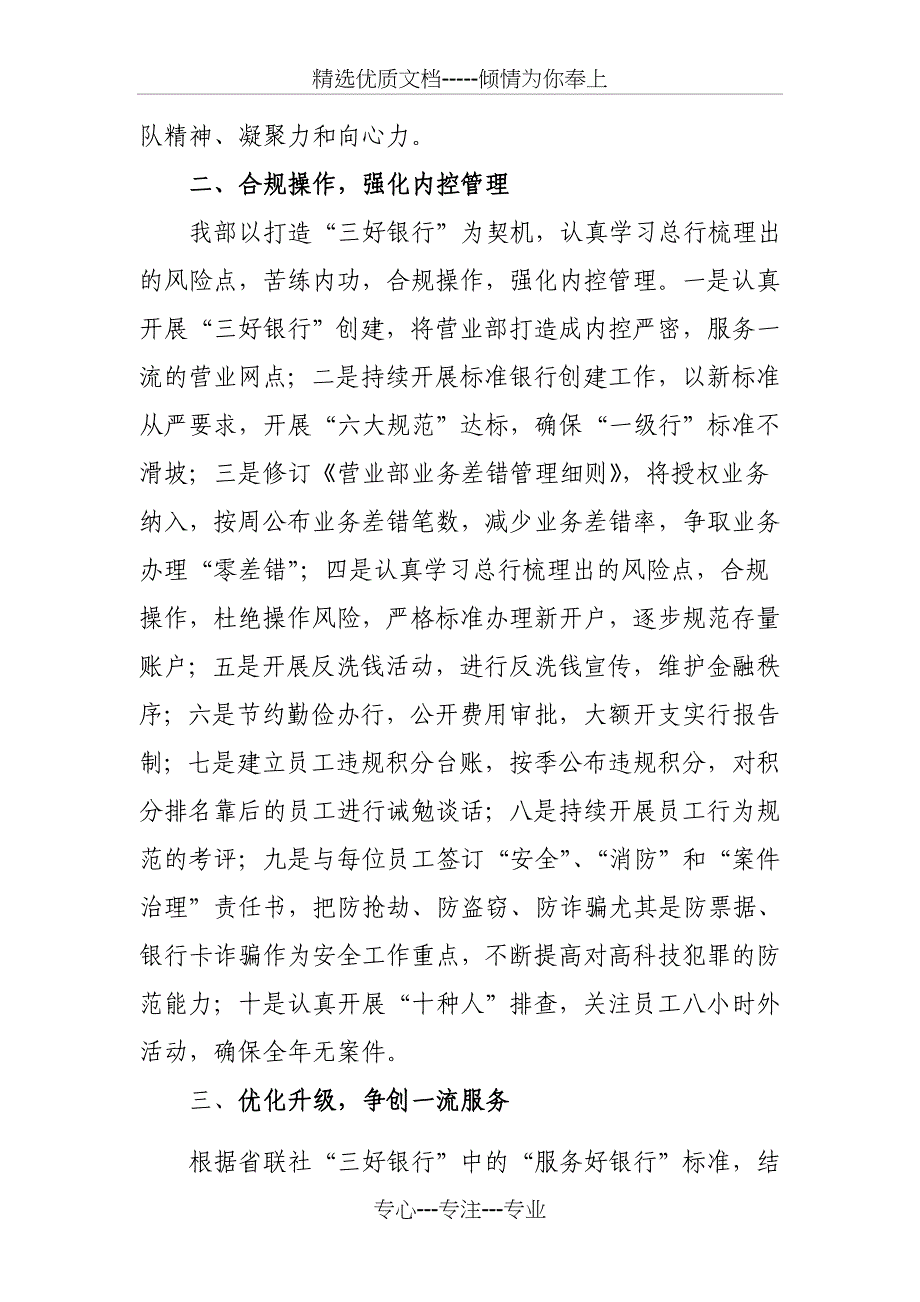 精选优质文档-----倾情为你奉上
队精神、凝聚力和向心力。
二、合规操作，强化内控管理
我部以打造“三好银行”为契机，认真学习总行梳理出
的风险点，苦练内功，合规操作，强化内控管理。一是认真
开展“三好银行”创建，将营业部打造成内控严密，服务一
流的营业网点；二是持续开展标准银行创建工作，以新标准
从严要求，开展“六大规范”达标，确保“一级行”标准不
滑坡；三是修订《营业部业务差错管理细则》，将授权业务
纳入，按周公布业务差错笔数，减少业务差错率，争取业务
办理“零差错”；四是认真学习总行梳理出的风险点，合规
操作，杜绝操作风险，严格标准办理新开户，逐步规范存量
账户；五是开展反洗钱活动，进行反洗钱宣传，维护金融秩
序；六是节约勤俭办行，公开费用审批，大额开支实行报告
制；七是建立员工违规积分台账，按季公布违规积分，对积
分排名靠后的员工进行诫勉谈话；八是持续开展员工行为规
范的考评；九是与每位员工签订“安全”、“消防”和“案件
治理”责任书，把防抢劫、防盗窃、防诈骗尤其是防票据、
银行卡诈骗作为安全工作重点，不断提高对高科技犯罪的防
范能力；十是认真开展“十种人”排查，关注员工八小时外
活动，确保全年无案件。
三、优化升级，争创一流服务
根据省联社“三好银行”中的“服务好银行”标准，结
专心---专注---专业